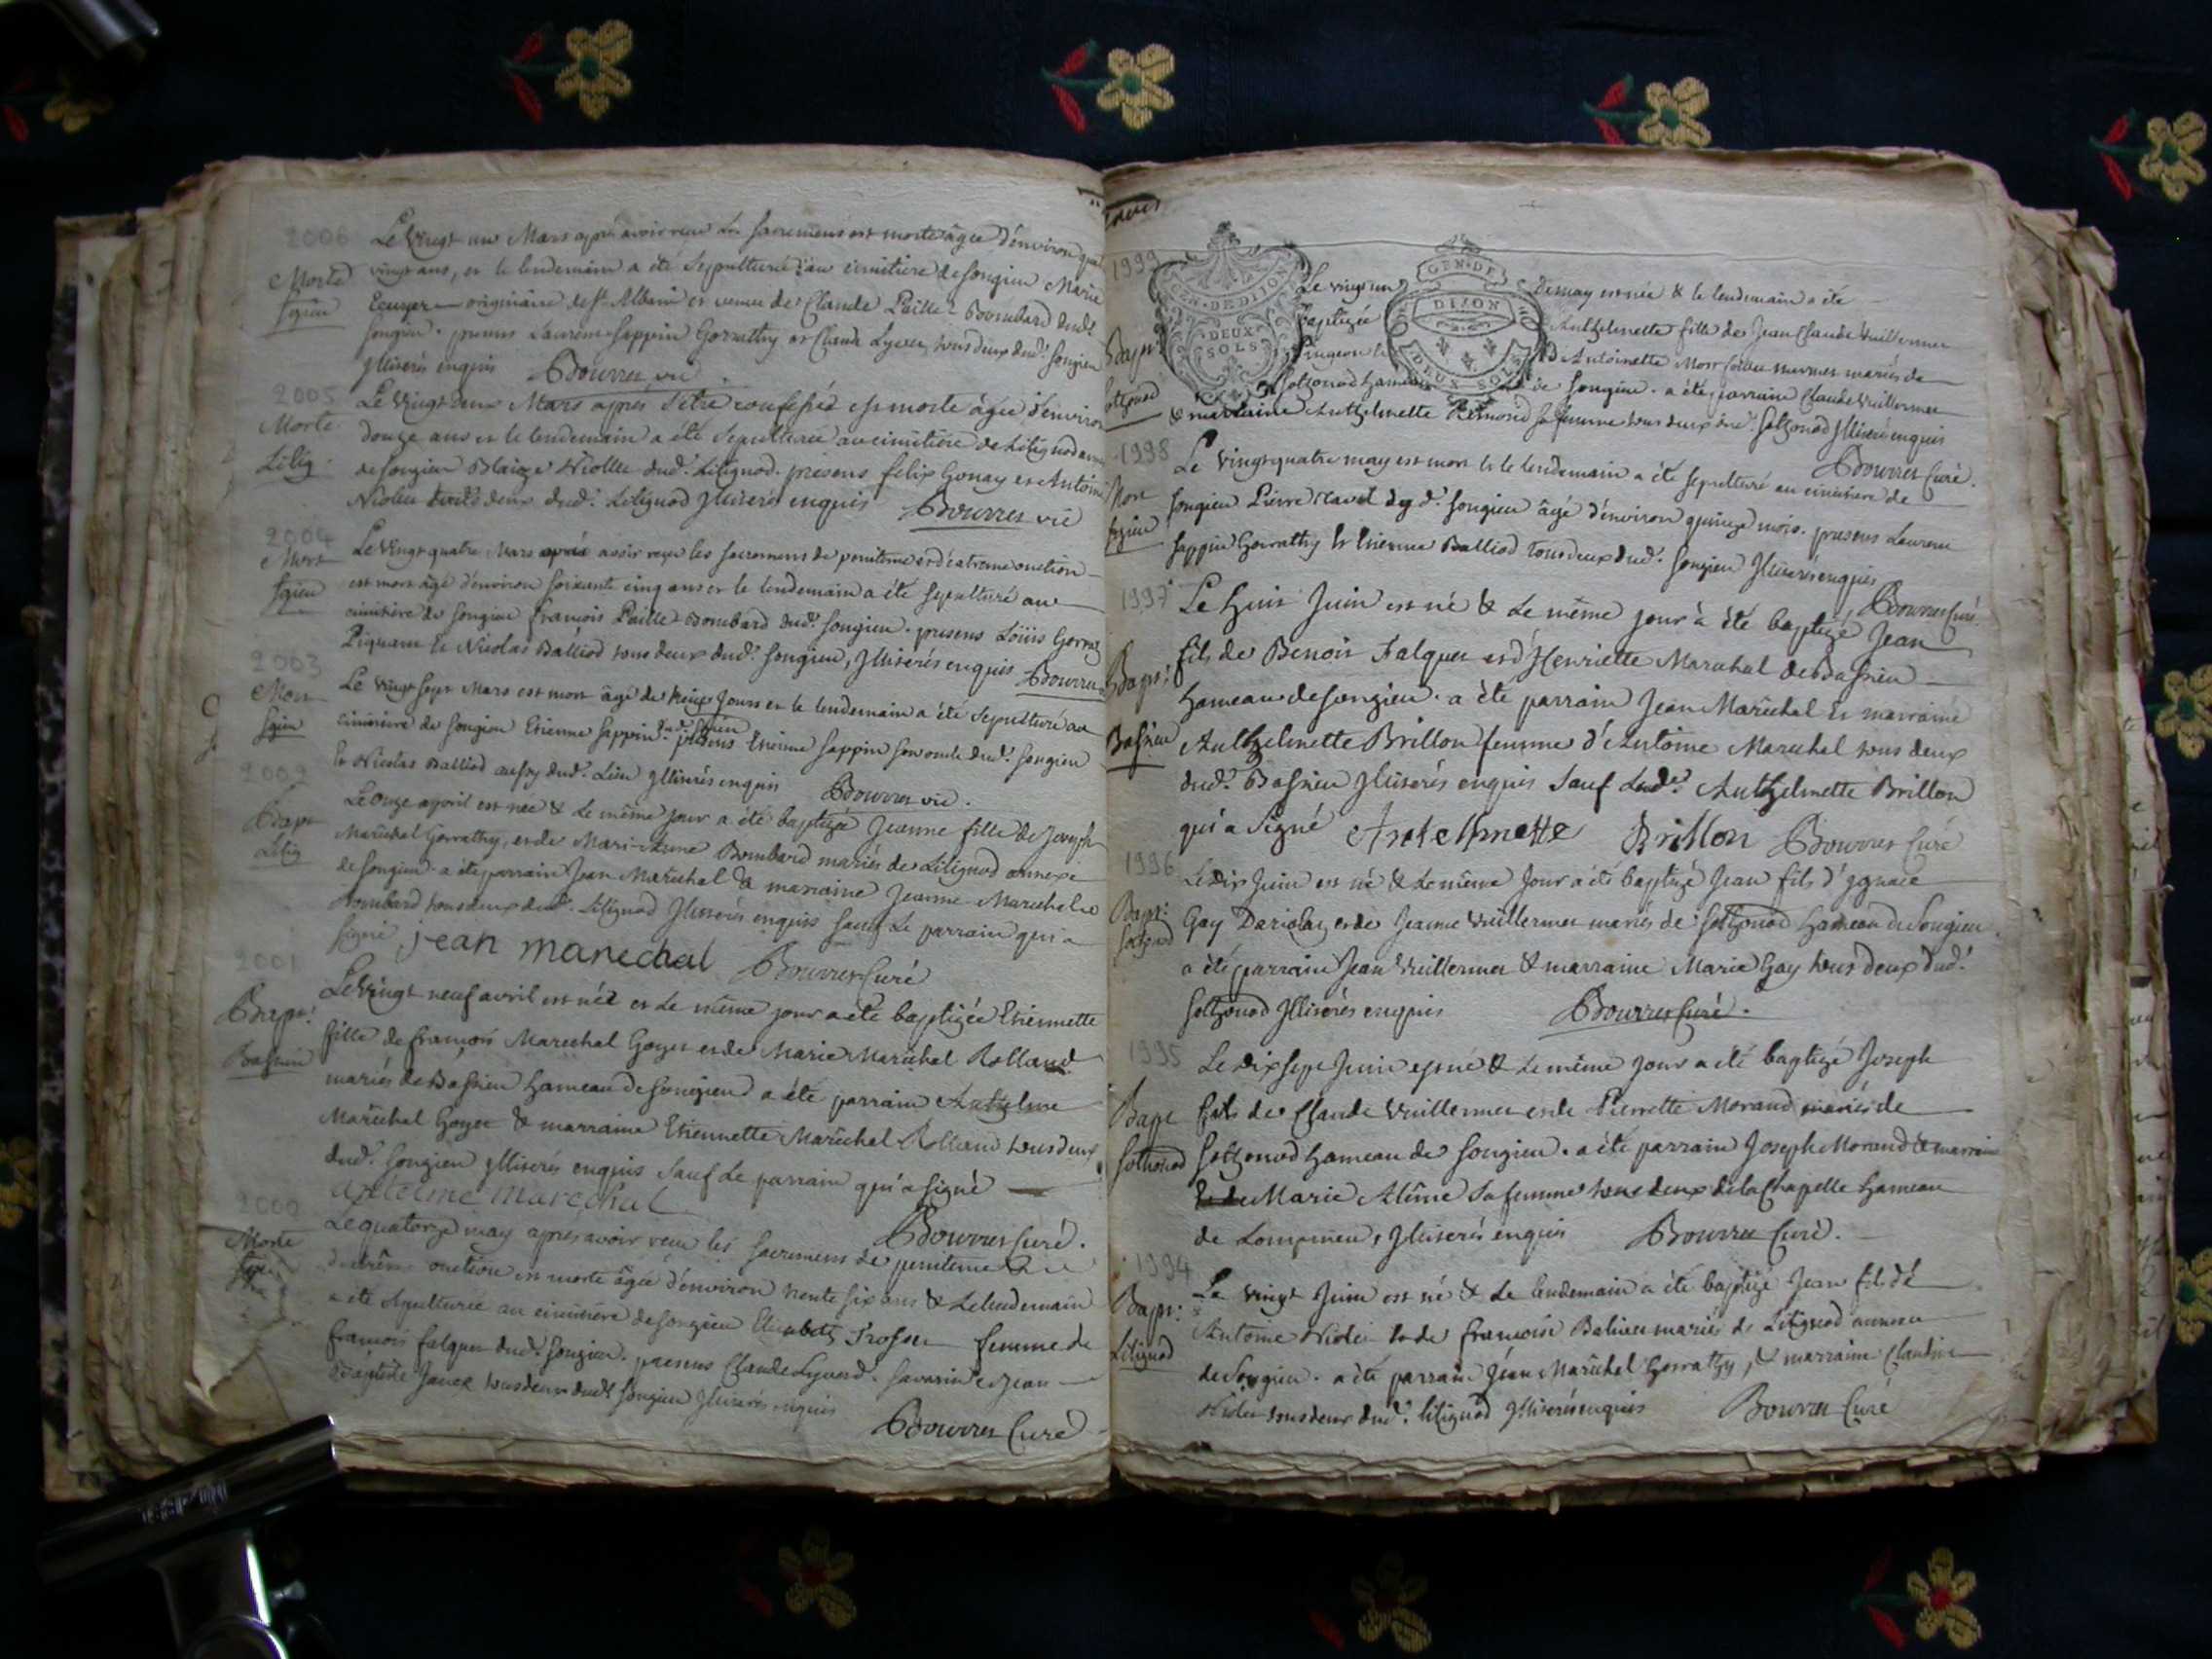 2006
Le vingt un Mars après avoir reçu les sacremens est morte âgée d'environ
Morte vingt ans, et le lendemain a été sepulturée au cimitiere de songieu Marie
sgieu originaire de st. Albain et veuve de Claude Paille Bombard dudt.
songieu. presens Laurent sappin Gorrathy et Claude tous deux dud. songieu
Illiterés enquis Bourret vic
2005
Le vingt deux Mars après s'être confessée est morte âgée d'environ
Morte douze ans et le lendemain a été sepulturée au cimitiere de Litignod annexe
Litig. de songieu Blaize Niollet dud. Litignod. presens felix Gonay et Antoine
Niollet tous deux dud. Litignod Illiterés enquis Bourret vic
2004
Le vingt quatre Mars après avoir reçu les sacremens de penitence et d'extreme onction
Mort est mort âgé d'environ soixante cinq ans et le lendemain a été sepulturé au
sgieu cimitiere de songieu françois Paille Bombard dud. songieu. presens Loüis
Piquant et Nicolas Balliod tous deux dud. songieu, Illiterés enquis Bourret
2003
Mort Le vingt sept Mars est mort âgé de jours et le lendemain a été sepulturé au
sgieu cimitiere de songieu Etienne sappin dud. sgieu presens Etienne sappin son oncle dud. songieu
et Nicolas Balliod aussy dud. Lieu Illiterés enquis Bourret vic.
2002
Le onze apvril est née & le même jour a été baptizée Jeanne fille de Joseph
Bapt Maréchal Gorrathy, et de Marie-Anne Bombard mariés de Litignod annexe
Litig de songieu. a été parrain Jean Maréchal & marraine Jeanne Marechal
Bombard tous deux dud. Litignod Illiterés enquis sauf le parrain qui a
signé jean marechal Bourret Curé
2001
Le vingt neuf avril est née et le même jour a été baptizée Etiennette
Bapt. fille de françois Marechal Goyet et de Marie Maréchal Rolland
Bassieu mariés de Bassieu hameau de songieu a été parrain Anthelme
Maréchal Goyet & marraine Etiennette Maréchal Rolland tous deux
dud. songieu Illiterés enquis sauf le parrain qui a signé
antelme marechal
2000
Bourret Curé.
Le quatorze may après avoir reçu les sacremens de penitence
Morte onction est morte âgée d'environ trente six ans & le lendemain
a été sepulturée au cimitiere de songieu Elisabeth femme de
françois falquet dud. songieu. presens Claude savarin et Jean
Baptiste Janex tous deux dudt songieu Illiterés enquis
Bourret Curé
1999
GEN. DE DIJON
DEUX SOLS
GEN. DE
DIJON
DEUX SOLS
Le vingt un de may est née & le lendemain a été
baptizée Anthelmette fille de Jean Claude Vuillermet
Bapt. & Antoinette mariés de
sothonod sothonod hameau de songieu. a été parrain Claude Vuillermet
& marraine Anthelmette Remond sa femme tous deux dud. sothonod Illiterés enquis
Bourret Curé.
1998
Le vingt quatre may est mort & le lendemain a été sepulturé au cimitiere de
Mort songieu Pierre dud. songieu âgé d'environ quinze mois. presens Laurent
sgieu sappin Gorrathy & Etienne Balliod tous deux dud. songieu Illiterés enquis
Bourret Curé.
1997
Le huit Juin est né & le même jour à été baptizé Jean
Bapt. fils de Benoit Falquet et d'Henriette Maréchal de Bassieu
hameau de songieu. a été parrain Jean Maréchal & marraine
Bassieu Anthelmette Brillon femme d'Antoine Marechal tous deux
dud. Bassieu Illiterés enquis sauf lade. Anthelmette Brillon
qui a signé Antelmette Brillon Bourret Curé
1996
Le dix Juin est né & le même jour a été baptizé Jean fils d'Ignace
Bapt. Gay Dariolay et de Jeanne Vuillermet mariés de sothonod hameau de songieu.
sothnod a été parrain Jean Vuillermet & marraine Marie Gay tous deux dud.
sothonod Illiterés enquis Bourret Curé.
1995
Le dix sept Juin est né & le même jour a été baptizé Joseph
Bapt fils de Claude Vuillermet et de Pierrette Morand mariés de
sothonod sothonod hameau de songieu. a été parrain Joseph Morand & marraine
Marie sa femme tous deux de la Chapelle hameau
de Lompnieu, Illiterés enquis Bourret Curé.
1994
Le vingt Juin est né & le lendemain a été baptizé Jean fils dé
Bapt. Antoine Niolet & de françoise mariés de Litignod annexe
Litignod de songieu. a été parrain Jean Maréchal Gorrathy, & marraine Claudine
Niolet tous deux dud. litignod Illiterés enquis Bourret Curé